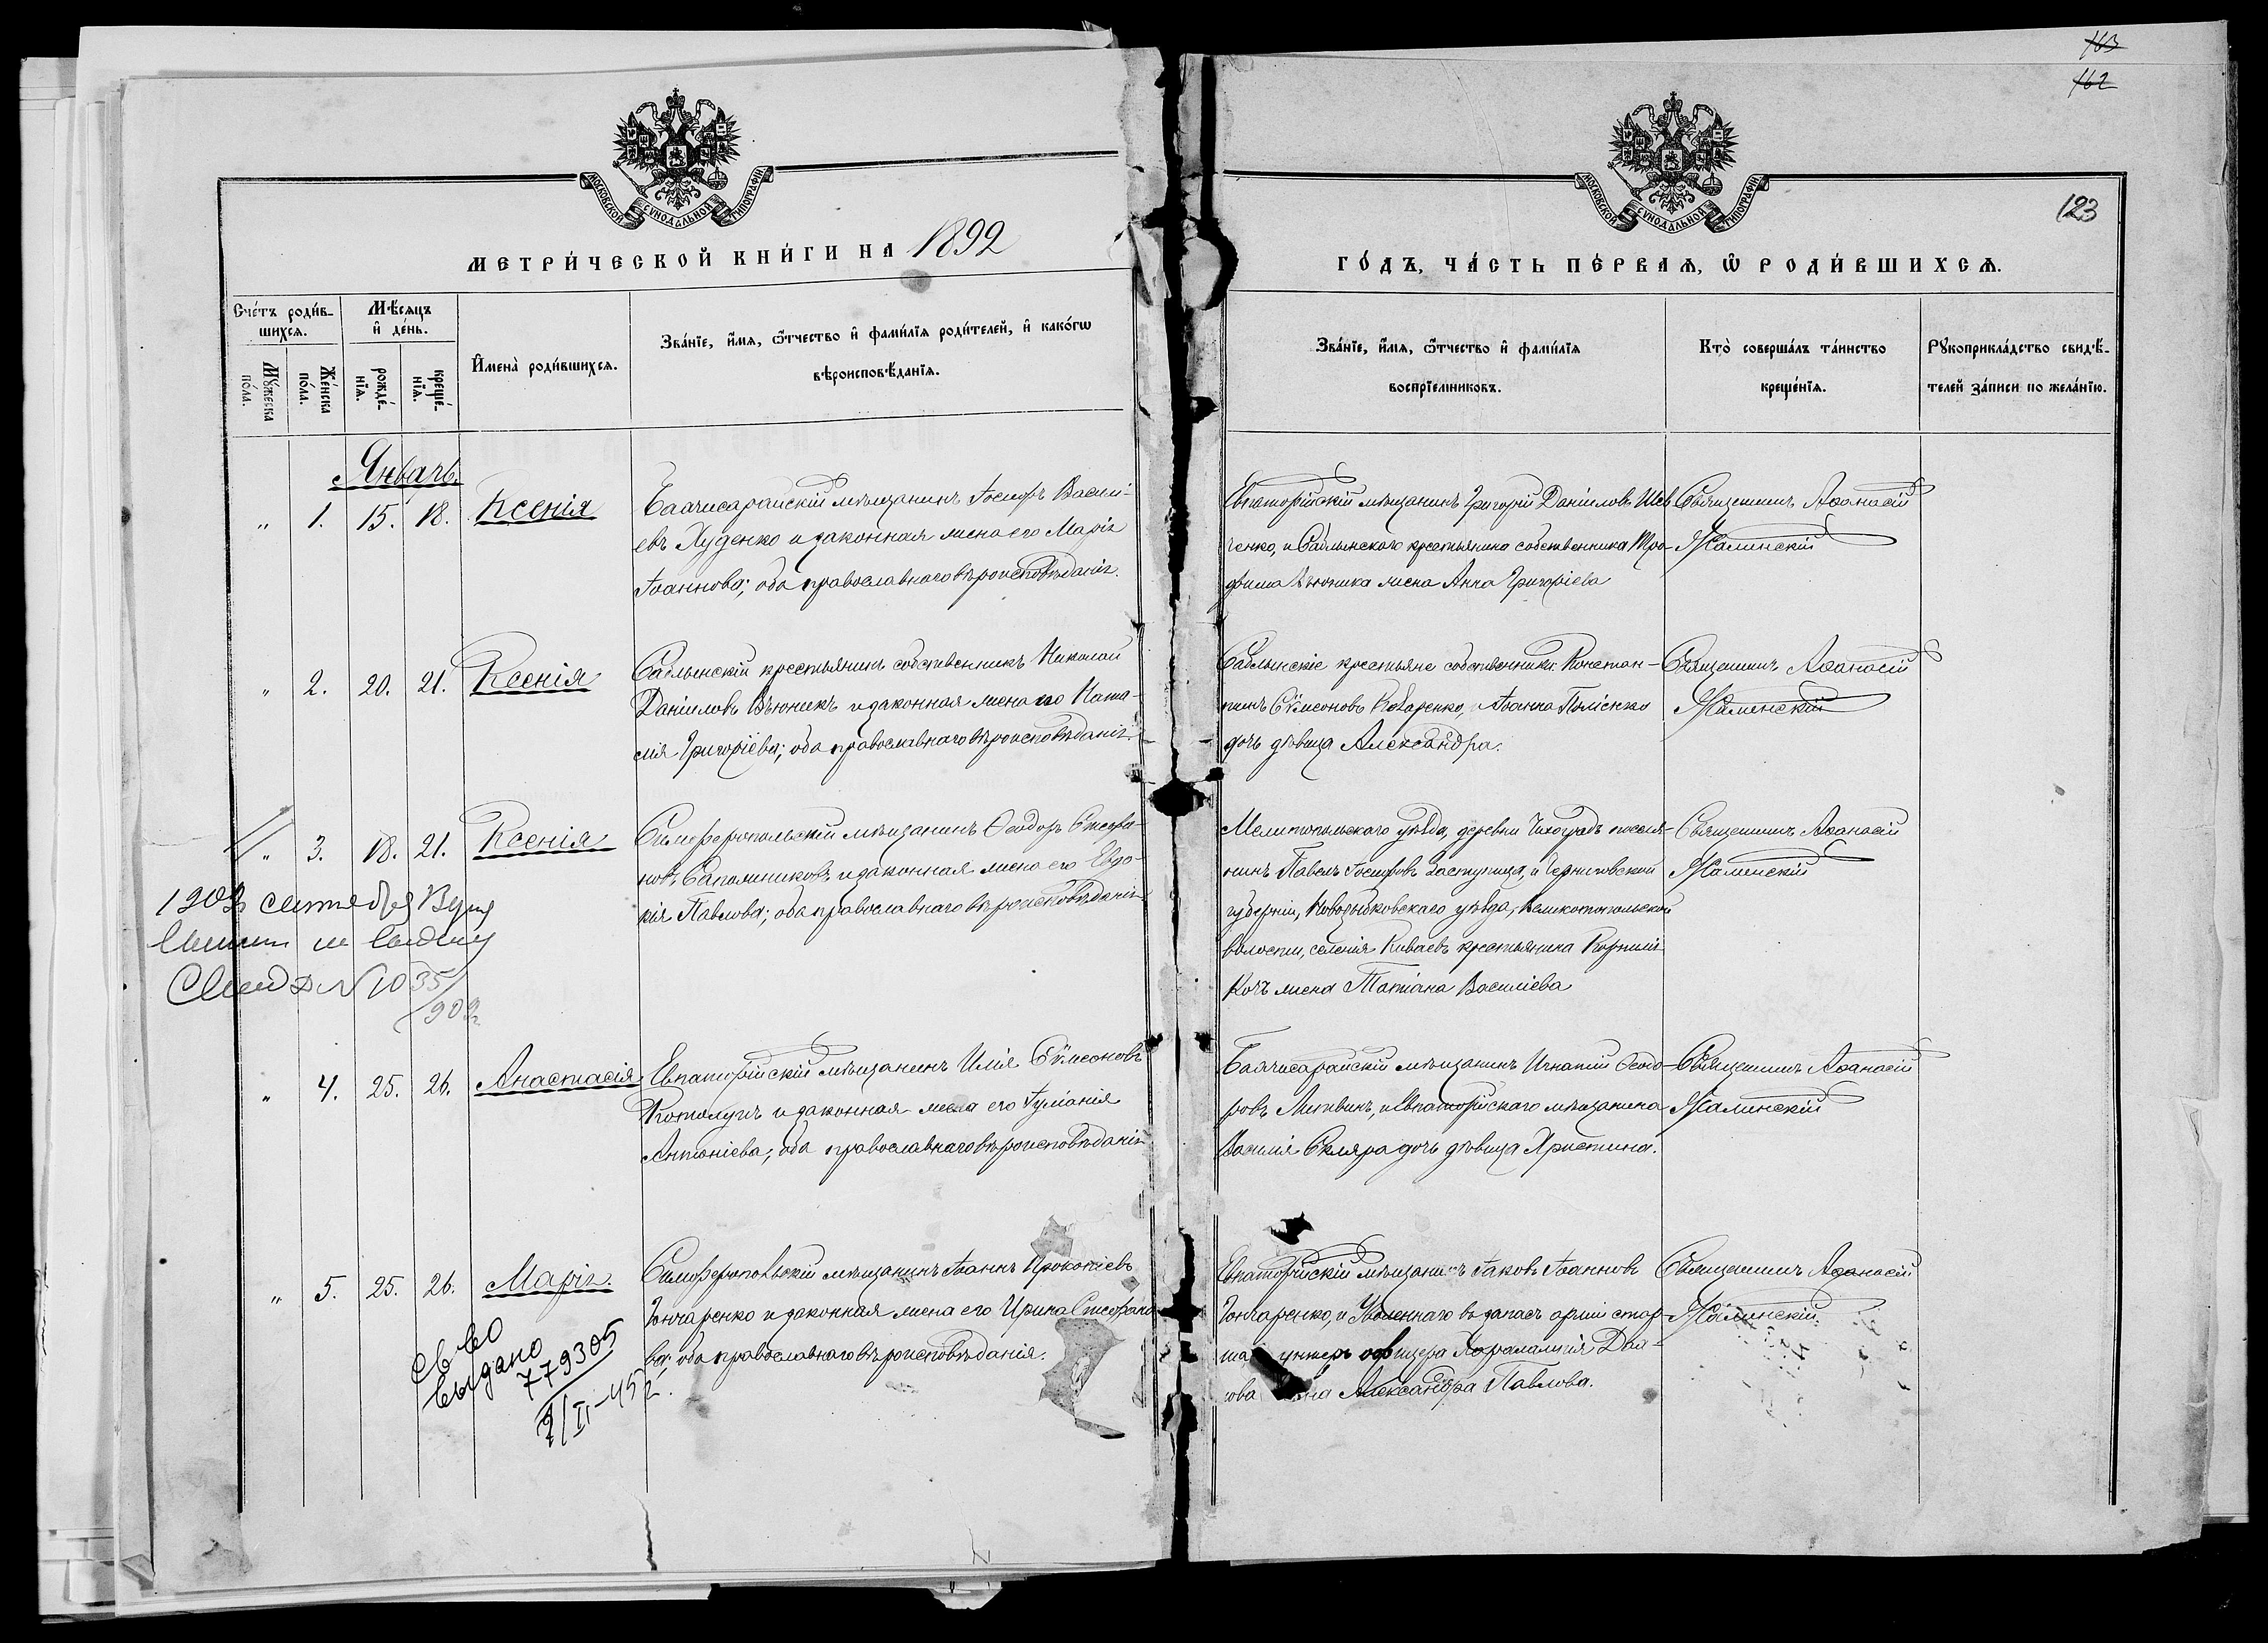 163
162
123
МОСКОВСКОЙ СУНОДАЛЬНОЙ ТИПОГРАФІИ
МОСКОВСКОЙ СУНОДАЛЬНОЙ ТИПОГРАФІИ
МЕТРИ́ЧЕСКОЙ КНИ́ГИ НА 1892
ГО́ДЪ, ЧА́СТЬ ПЕ́РВАѦ, Ѡ РОДИ́ВШИХСѦ.
Счéтъ роди́в-
шихсѧ.
Мꙋжеска
по́ла.
Же́нска
по́ла.
Мѣ́сѧцъ
и҆ де́нь.
рожде́-
нїѧ.
креще́-
нїѧ.
И҆мена̀ роди́вшихсѧ.
Зва́нїе, и҆́мѧ, ѻ҆́тчество и҆ фами́лїѧ роди́телей, и҆ како́гѡ
вѣроисповѣ́данїѧ.
Зва́нїе, и҆́мѧ, ѻ҆́тчество и҆ фами́лїѧ
воспрїе́мниковъ.
Кто̀ соверша́лъ та́инство
креще́нїѧ.
Рꙋкоприкла́дство свидѣ́-
телей за́писи по жела́нїю.
Январь.
" 1. 15. 18. Ксенія
Бахчисарайскій мѣщанинъ Іосифъ Василі-
евъ Луденко и законная жена его Марія
Іоаннова; оба православнаго вѣроисповѣданія.
Евпаторійскій мѣщанинъ Григорій Даниловъ Шев
ченко, и Саблынского крестьянина собственника Тро-
фима Вьюника жена Анна Григоріева
Священникъ Аѳанасій
Жалинскій
" 2. 20. 21. Ксенія
Саблынскій крестьянинъ собственникъ Николай
Даніиловъ Вьюникъ и законная жена его Ната-
лія Григоріева; оба православнаго вѣроисповѣданія.
Саблынскіе крестьяне собственники Констан-
тинъ Сѵмеоновъ Коваренко, Іоанна
дочь дѣвица Александра.
Священникъ Аѳанасій
Жалинскій
" 3. 18. 21. Ксенія
Симферопольскій мѣщанинъ Ѳеодоръ Стефа-
новъ Сапожниковъ и законная жена его Евдо-
кія Павлова; оба православнаго вѣроисповѣданія
Мелитопольскаго уѣзда, деревни поселя-
нинъ Павелъ Іосифовъ Заступица, и Черниговской
губерніи, Новозыбковскаго уѣзда, Великотопольской
волости, селенія Киваевъ крестьянина Корнилія
Кочъ жена Татіана Василіева
Священникъ Аѳанасій
Жалинскій
сентября
№ 1035/
909
" 4. 25. 26. Анастасія
Евпаторійскій мѣщанинъ Илія Сѵмеоновъ
и законная жена его Іуліанія
Антоніева; оба православнаго вѣроисповѣданія
Бахчисарайскій мѣщанинъ Игнатій Ѳеодо-
ровъ Литвинъ, и Евпаторійскаго мѣщанина
Василія Скляра дочь дѣвица Христина.
Священникъ Аѳанасій
Жалинскій
" 5. 25. 26. Марія.
Симферопольскій мѣщанинъ Іоаннъ Прокопіевъ
Гончаренко и законная жена его Ирина Стефано
ва; оба православнаго вѣроисповѣданія.
Евпаторійскій мѣщанинъ Іаковъ Іоанновъ
Гончаренко, и Уволеннаго въ запасъ арміи стар-
ша унтеръ офицера Харалампія Дол-
гова жена Александра Павлова.
Священникъ Аѳанасій
Жалинскій.
св-во
выдано
779305
2/II-45 г.